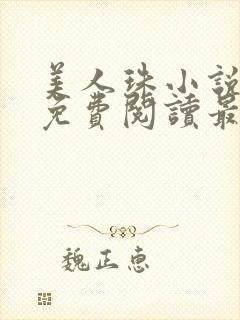 美人珠小說
免費閱讀最
魏正惠